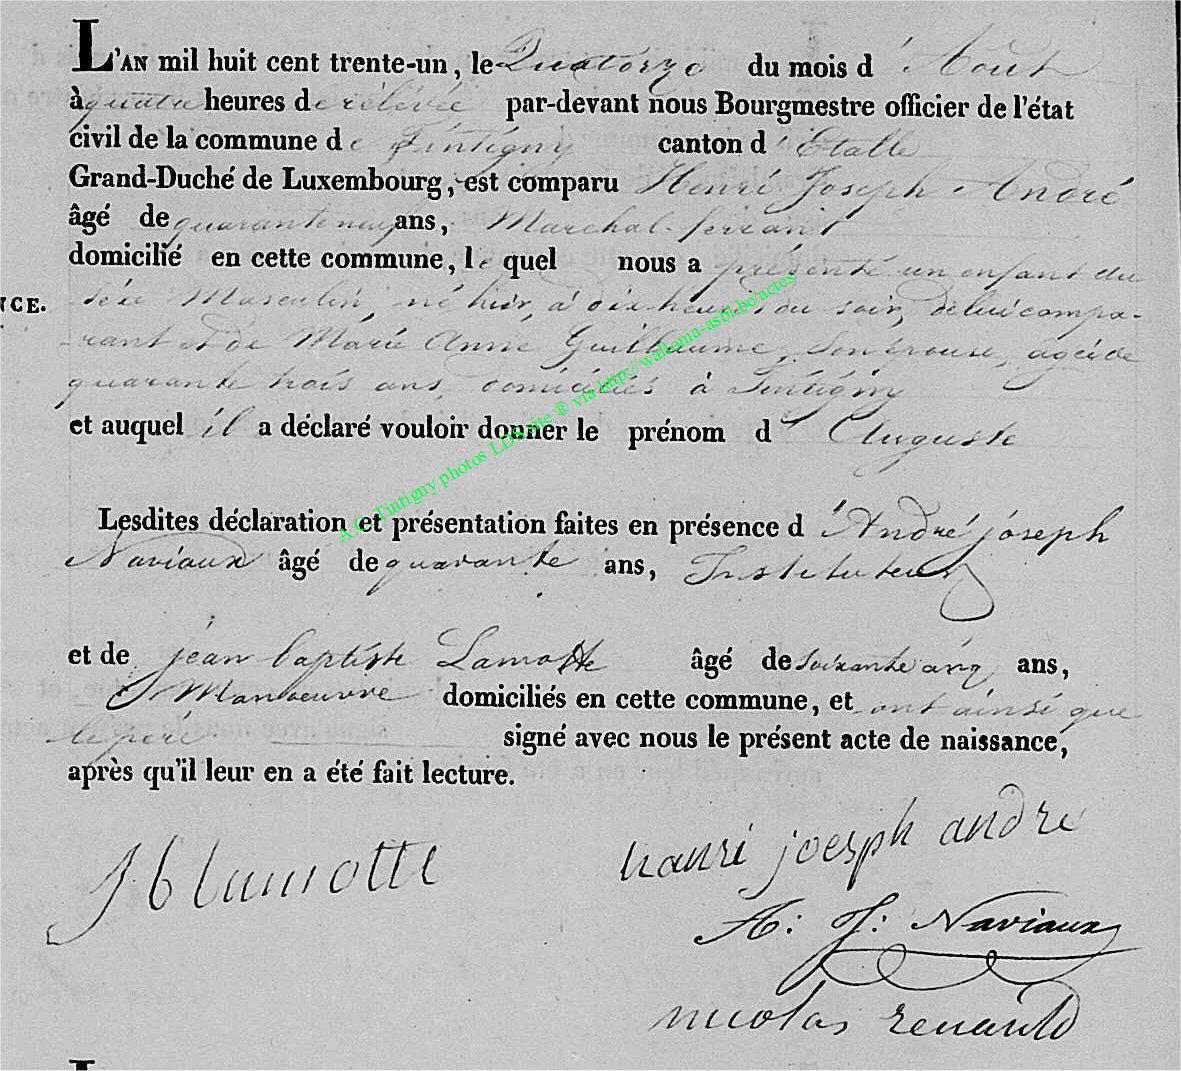 L'AN mil huit cent trente-un, le Quatorze du mois d'Aout
à quatre heures de rélévée par-devant nous Bourgmestre officier de l'état
civil de la commune de Tintigny canton d'Etalle
Grand-Duché de Luxembourg, est comparu Henri Joseph André
âgé de quarante neuf ans, Marechal-ferrant
domicilié en cette commune, le quel nous a présenté un enfant du
NCE. séxe Masculin, né hier, à dix heures du soir, de lui compa-
rant et de Marie Anne Guillaume, son épouse, agée de
quarante trois ans, domiciliés à Tintigny
et auquel il a déclaré vouloir donner le prénom d'Auguste
A.C. Tintigny photos LDS site ® via http://wallonia-asbl.be/actes
Lesdites déclaration et présentation faites en présence d'André joseph
Naviaux âgé de quarante ans, Instituteur
et de jean baptiste Lamotte âgé de soixante cinq ans,
Manoeuvre domiciliés en cette commune, et ont ainsi que
le pere signé avec nous le présent acte de naissance,
après qu'il leur en a été fait lecture.
J b lamotte
hanri joesph andre
A: J: Naviaux
nicolas renauld